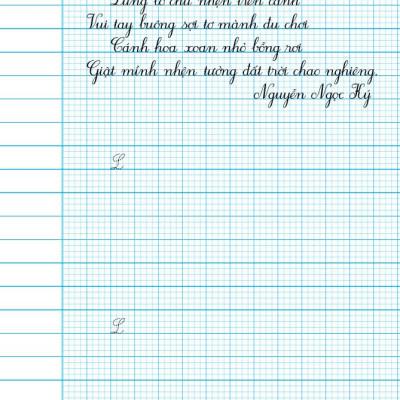 tơ chú nhện trên cành
Vui tay buông sợi tơ mành đu chơi
Cánh hoa xoan nhỏ bỗng rơi
Giật mình nhện tưởng đất trời chao nghiêng.
Nguyễn Ngọc Hý
L
L